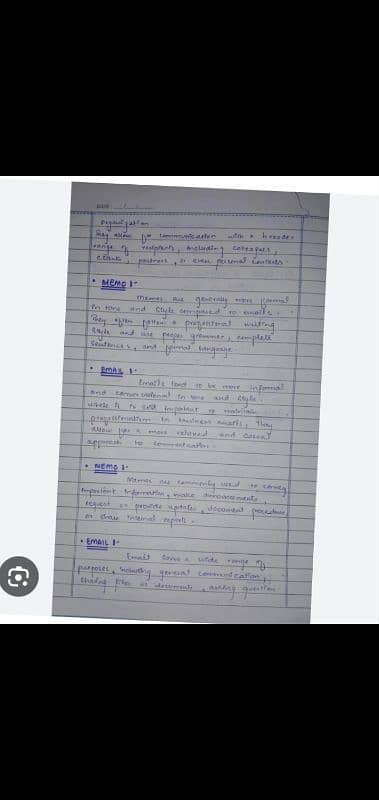 DATE
organization
They allow for communication with a broader
range of recipients, including coworkers,
clients, partners, or even personal contacts
• MEMO :-
Memos are generally more formal
in tone and style compared to emails.
They often follow a professional writing
style and use proper grammar, complete
sentences, and formal language.
• EMAIL :-
Emails tend to be more informal
and conversational in tone and style.
while it is still important to maintain
professionalism in business emails, they
allow for a more relaxed and casual
approach to communication.
• MEMO :-
Memos are commonly used to convey
important information, make announcements,
request or provide updates, document procedure
or share internal reports.
• EMAIL :-
Email serve a wide range of
purposes, including general communication,
sharing files or documents, asking question